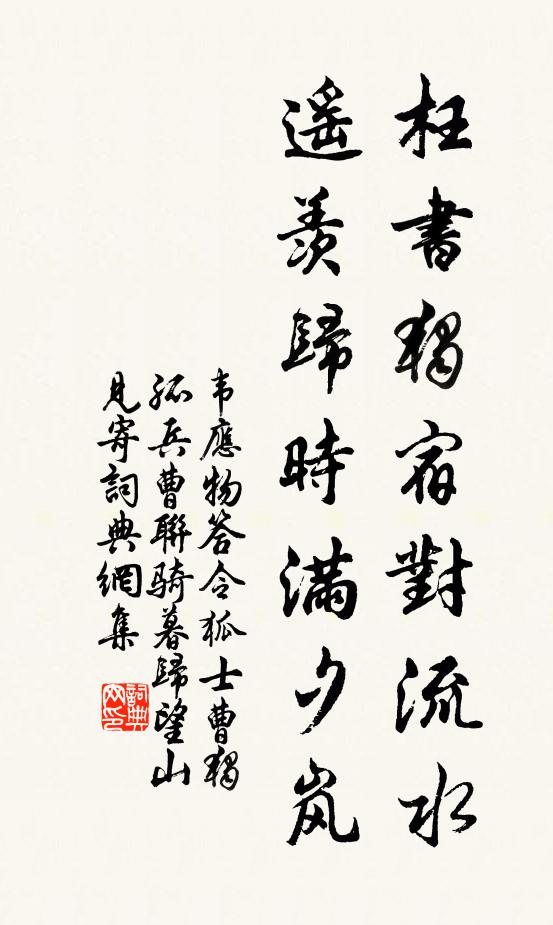 枉書獨宿對流水
遥羨歸時滿夕岚
韦應物答令狐士曹獨
孤兵曹聯騎暮歸望山
見寄詞典網集
詞典
网印